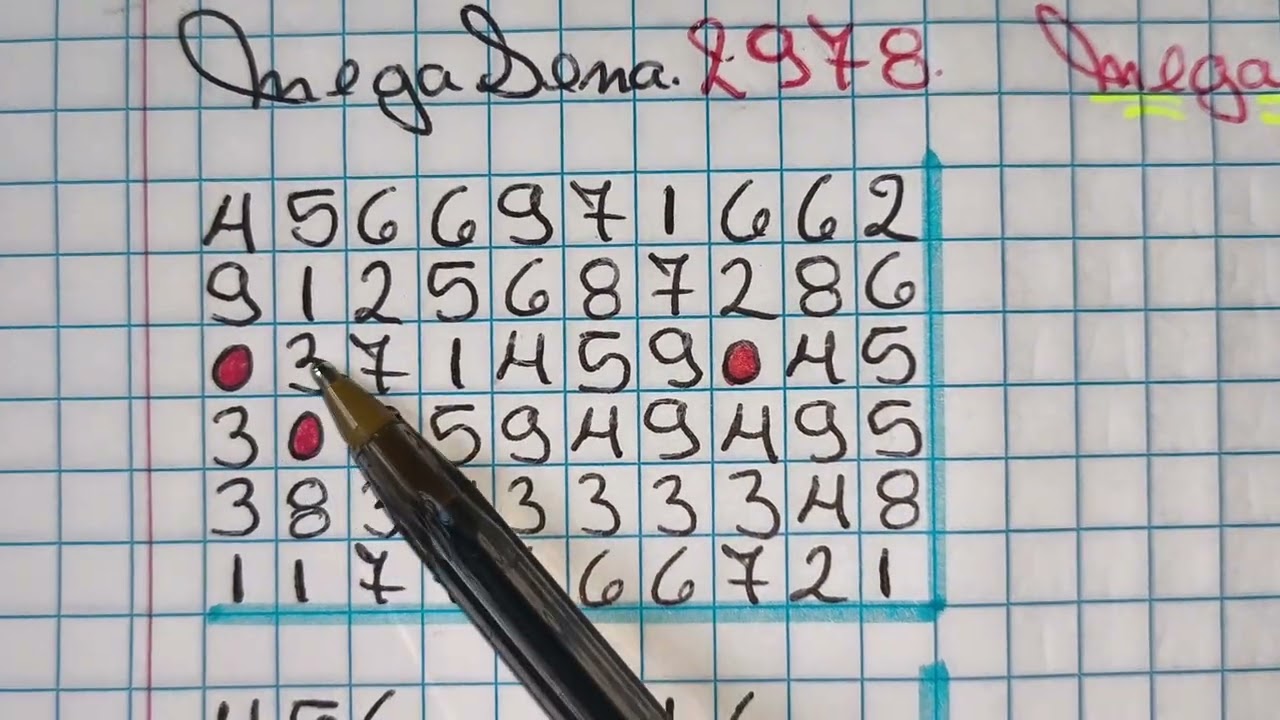 Mega Sena. 2978. Mega
4 5 6 6 9 7 1 6 6 2
9 1 2 5 6 8 7 2 8 6
3 7 1 4 5 9 4 5
3 5 9 4 9 4 9 5
3 8 3 3 3 3 3 4 8
1 1 7 6 6 7 2 1
4 5 6